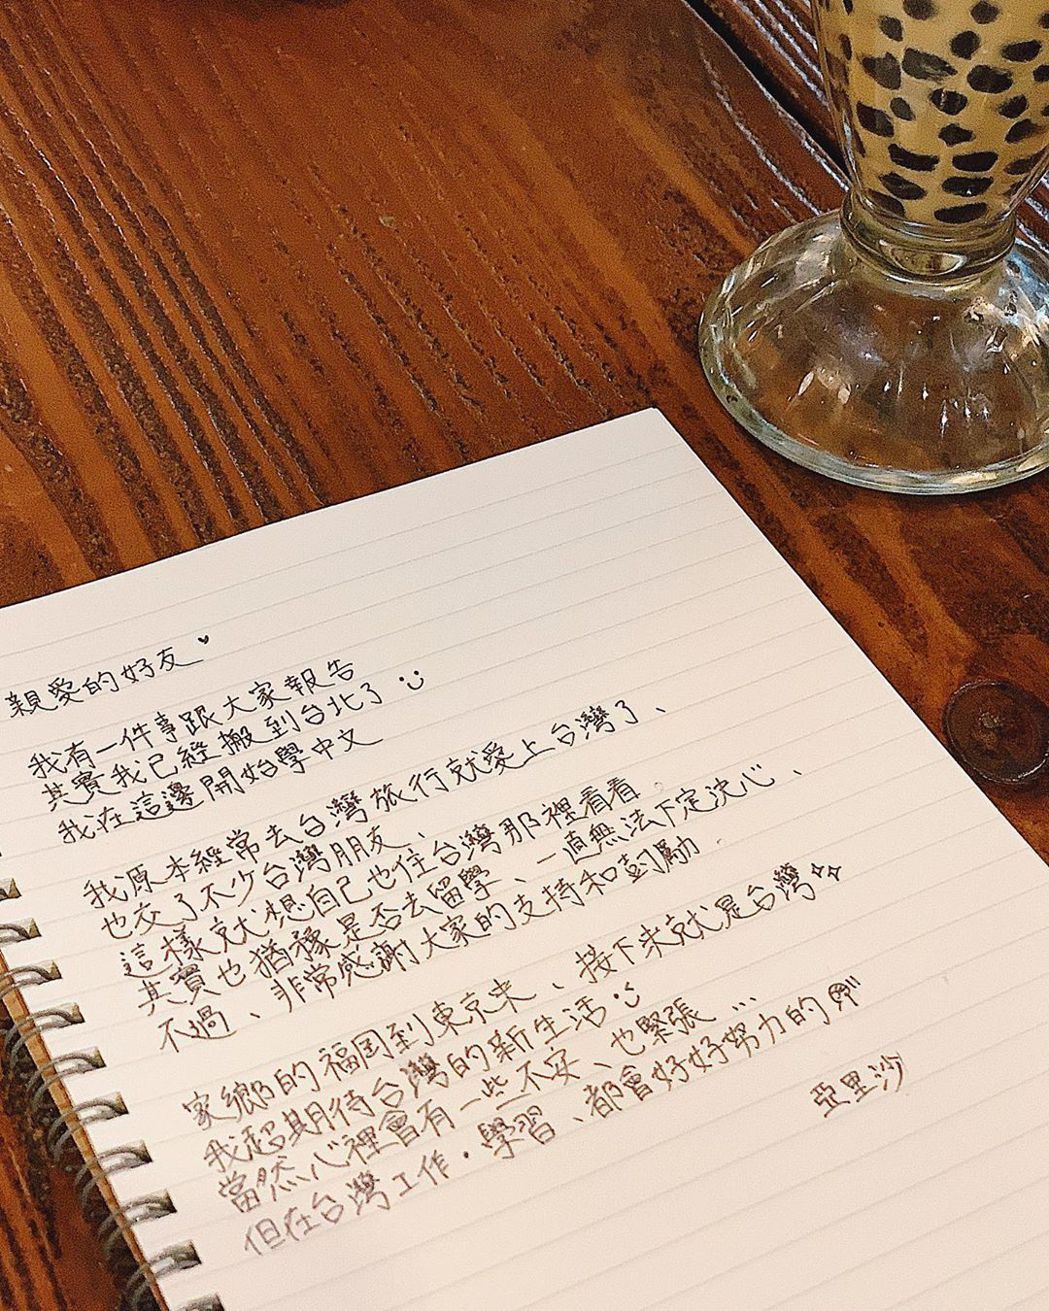 親愛的好友
我有一件事跟大家報告
其實我已經搬到台北了
我在這邊開始學中文
我原本經常去台灣旅行就愛上台灣了、
也交了不少台灣朋友、
這樣就想自己也住台灣那裡看看
其實也猶豫是否去留學、一直無法下定決心、
不過、非常感謝大家的支持和鼓勵.
家鄉的福岡到東京來、接下來就是台灣
我超期待台灣的新生活
當然心裡會有一些不安、也緊張...
但在台灣工作・學習、都會好好努力的
亞里沙